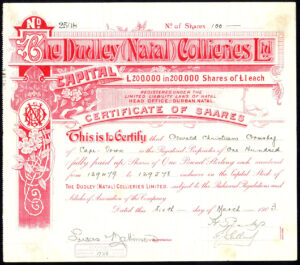 No 2518
No of Shares 100
The Dudley (Natal) Collieries Ltd
CAPITAL
£200000 in 200,000 Shares of £1 each
REGISTERED UNDER THE
LIMITED LIABILITY LAWS OF NATAL
HEAD OFFICE: DURBAN, NATAL.
CERTIFICATE OF SHARES
This is to Certify that Oswald Christian
of Cape Town is the Registered Proprietor of One Hundred
fully paid up Shares of One Pound Sterling each numbered
from 129479 to 129578 inclusive in the Capital Stock of
THE DUDLEY (NATAL) COLLIERIES LIMITED, subject to the Rules and Regulations and
Articles of Association of the Company
Dated this Sixth day of March 1903